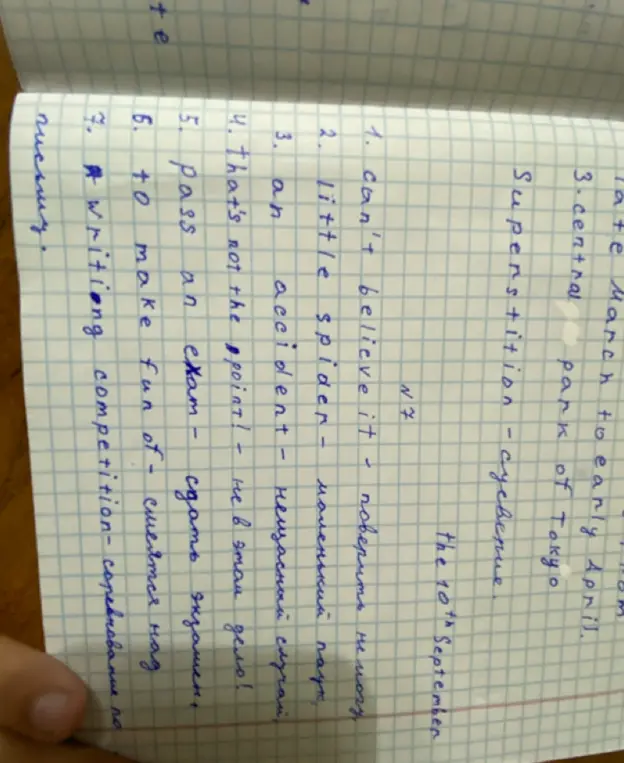 te
late March to early April.
3. central park of Tokyo
Superstition - суеверие.
the 10th September
N7
1. can't believe it - поверить не могу,
2. little spider - маленький паук,
3. an accident - нещасный случай,
4. that's not the point! - не в этом дело!
5. pass an exam - сдать экзамен,
6. to make fun of - смеятся над
7. writiong competition - соревнование по
письму.